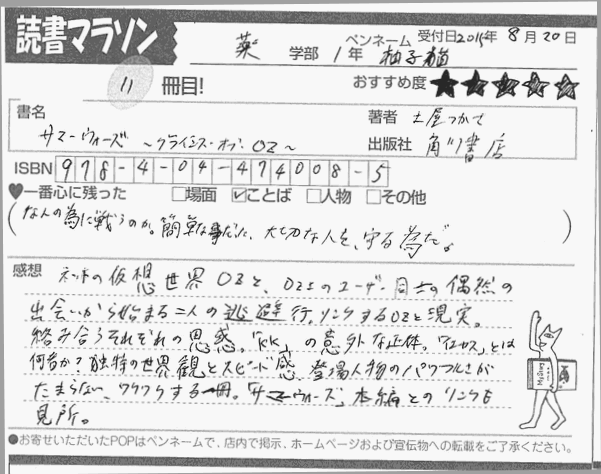 読書マラソン
薬 学部 1年 ペンネーム 柚子猫 受付日2015年8月20日
11 冊目!
おすすめ度 ★★★★★
書名
サマーウォーズ ～クライシス・オブ・OZ～
著者 土屋つかさ
出版社 角川書店
ISBN 978-4-04-474008-5
♥一番心に残った □場面 ☑ことば □人物 □その他
(なんの為に戦うのか。簡単な事だった、大切な人を、守る為だ。)
感想 ネットの仮想世界OZと、OZでのユーザー同士の偶然の
出会いから始まる二人の逃避行。リンクするOZと現実。
絡み合うそれぞれの思惑。「kk」の意外な正体。「イエロス」とは
何者か?独特の世界観とスピード感、登場人物のパワフルさが
たまらない、ワクワクする一冊。「サマーウォーズ」本編とのリンクも
見所。
●お寄せいただいたPOPはペンネームで、店内で掲示、ホームページおよび宣伝物への転載をご了承ください。